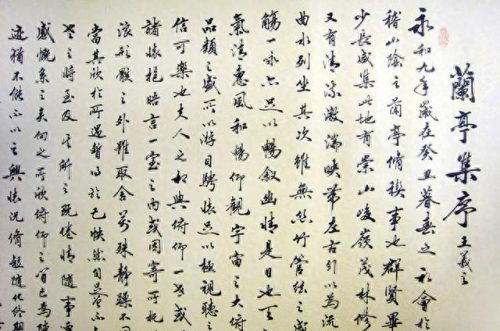 蘭亭集序 王羲之
永和九年歲在癸丑暮春之初會於
稽山陰之蘭亭脩稧事也群賢畢
少長咸集此地有崇山峻嶺茂林脩
又有清流激湍映帶左右引以為流
曲水列坐其次雖無絲竹管弦之盛
觴一詠亦足以暢敘幽情是日也天
氣清惠風和暢仰觀宇宙之大俯
品類之盛所以遊目騁懷足以極視聽之
信可樂也夫人之相與俯仰一世或
諸懷抱晤言一室之內或因寄所託
浪形骸之外雖取舍萬殊靜躁不同
當其欣於所遇暫得於己快然自足不
老之將至及其所之既倦情隨事遷
感慨係之矣向之所欣俯仰之間已為陳
迹猶不能不以之興懷況脩短隨化終期